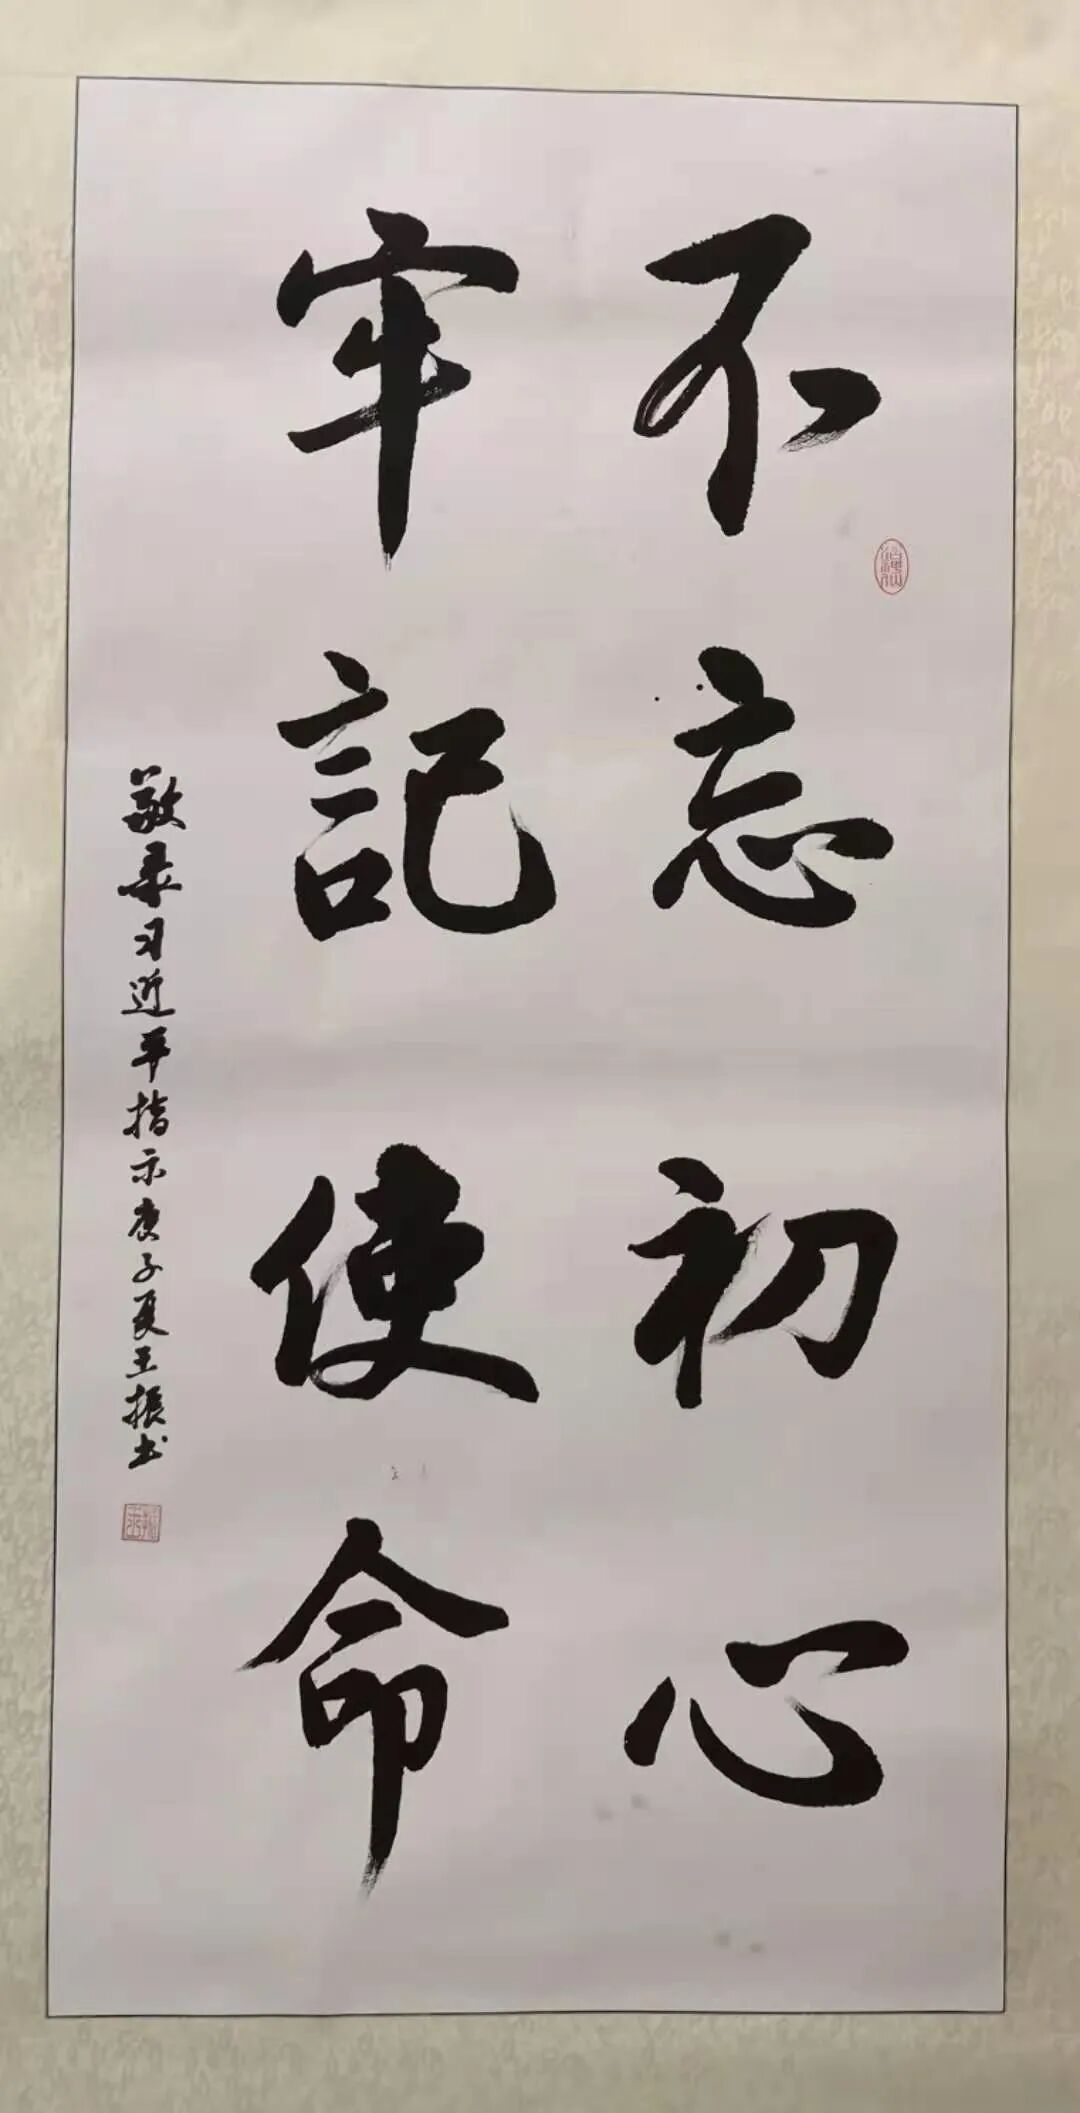 不忘初心
牢記使命
敬录习近平指示庚子夏王振书